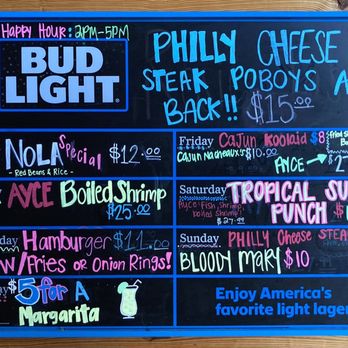 Happy Hour: 2PM-5PM
BUD
LIGHT
PHILLY CHEESE
STEAK POBOYS A
BACK!! $15.00
NOLA Special $12.00
- Red Beans & Rice -
AYCE Boiled Shrimp
$25.00
day Hamburger $11.00
W/Fries or Onion Rings!
$5 for A
Margarita
Friday Cajun Koolaid $8
Cajun Nacheaux $10.00
AYCE $2
Saturday TROPICAL SU
PUNCH $1
AYCE: Fish, Shrimp,
boiled shrimp
$27.99
Sunday PHILLY Cheese STEA
BLOODY MARY $10
Enjoy America's
favorite light lager